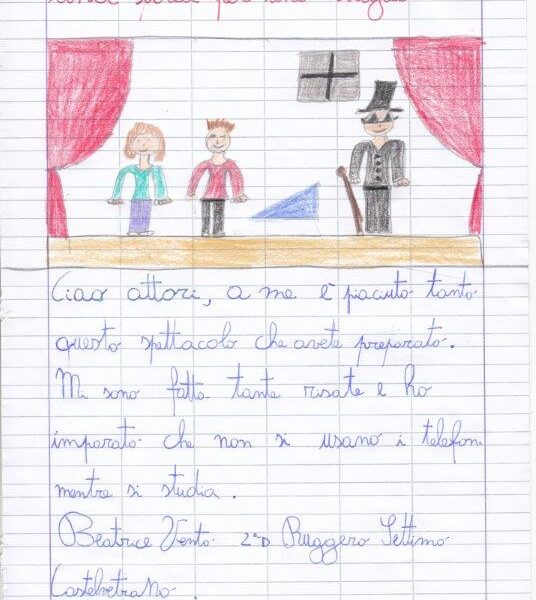 per
Ciao attori, a me è piaciuto tanto
questo spettacolo che avete preparato.
Mi sono fatta tante risate e ho
imparato che non si usano i telefoni
mentre si studia.
Beatrice Vento 2ªD Ruggero Settimo
Castelvetrano.